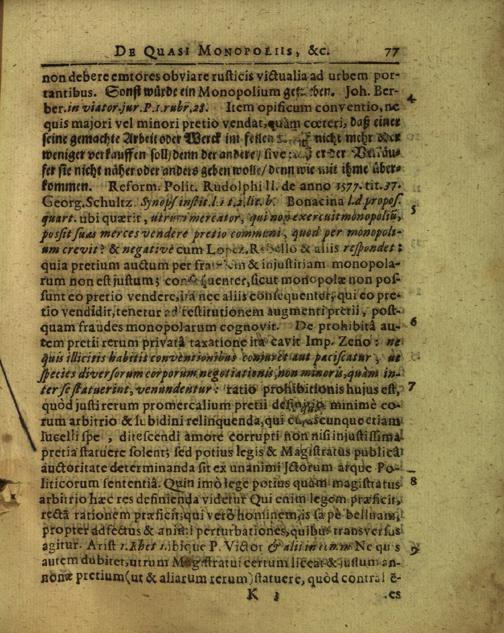 DE QUASI MONOPOLIIS, &c. 77
non debere emtores obviare rusticis victualia ad urbem por-
tantibus. Sonst würde ein Monopolium Joh. Ber- 4
ber. in viator. jur. P. 1. rubr. 28. Item opificum conventio, ne
quis majori vel minori pretio vendat, quàm cœteri, daß einer
seine gemachte Arbeit oder Werck im feilen nicht mehr oder
weniger verkauffen soll/ denn der andere/ sive: er der
fer sie nicht näher oder anders geben wolle/ denn wie mit ihme über-
kommen. Reform. Polit. Rudolphi II. de anno 1577. tit. 37.
Georg. Schultz. Synops instit. l. 1 t. 2. lit. b. Bonacina l. d. propos. 5
quart. ubi quærit, utrum mercator, qui non exercuit monopoliũ,
possit suas merces vendere pretio communi, quod per monopoli-
um crevit? & negativè cum Lopez, Rebello & aliis respondet:
quia pretium auctum per & injustitiam monopola-
rum non est justum; consequenter, sicut monopolæ non pos-
sunt eo pretio vendere, ita nec alii consequenter, qui eo pre-
tio vendidit, tenetur ad restitutionem augmenti pretii, post-
quam fraudes monopolarum cognovit. De prohibitâ au- 6
tem pretii rerum privatâ taxatione ita cavit Imp. Zeno: ne
quis illicitis habitis conventionibus conjuret aut paciscatur, ut
species diversorum corporum negotiationis, non minoris, quàm in-
ter se statuerint, venundentur: ratio prohibitionis hujus est, 7
quòd justi rerum promercalium pretii definitio minimè eo-
rum arbitrio & lubidini relinquenda, qui cujuscunque etiam
lucelli spe, ditescendi amore corrupti non nisi injustissima
pretia statuere solent; sed potius legis & Magistratus publicâ
auctoritate determinanda sit ex unanimi Jctorum atque Po-
liticorum sententiâ. Quin imò lege potius quàm magistratus 8
arbitrio hæc res definienda videtur Qui enim legem præficit,
rectâ rationem præficit; qui verò hominem, is sæpe belluam,
propter adfectus & animi perturbationes, quibus transversus
agitur. Arist 1. Rhet 1. ibique P. Victor & alii in eum Ne quis 9
autem dubitet, utrum Magistratui certum liceat & justum an-
nonæ pretium (ut & aliarum rerum) statuere, quòd contral ē-
K 3 es